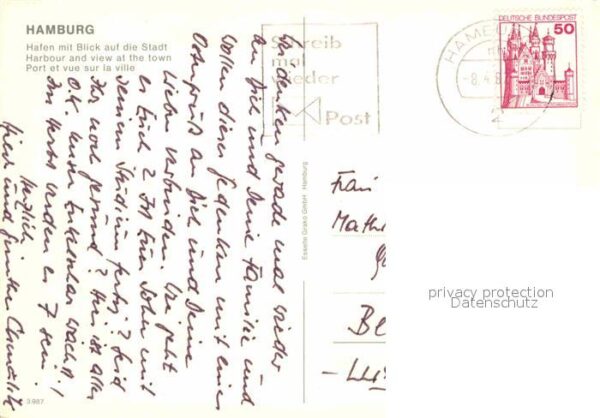 HAMBURG
Hafen mit Blick auf die Stadt
Harbour and view at the town
Port et vue sur la ville
Schreib
mal
wieder
Post
DEUTSCHE BUNDESPOST
50
HAME
-8.4.8
2
Wir denken gerade mal wieder
an Dich und Deine Familie und
wollen dieses Gedenken mit einem
Ostergruß an Dich und Deine
Lieben verbinden. Wie geht
es Euch? Ist Euer Sohn mit
seinem Studium fertig? Seid
Ihr noch gesund? Hier ist alles
O.K. Unsere Enkelschar wächst!
Im Herbst werden es 7 sein.
Herzlich
und Günther
Esselte Grako GmbH Hamburg
Frau
Math
Be
3987
privacy protection
Datenschutz